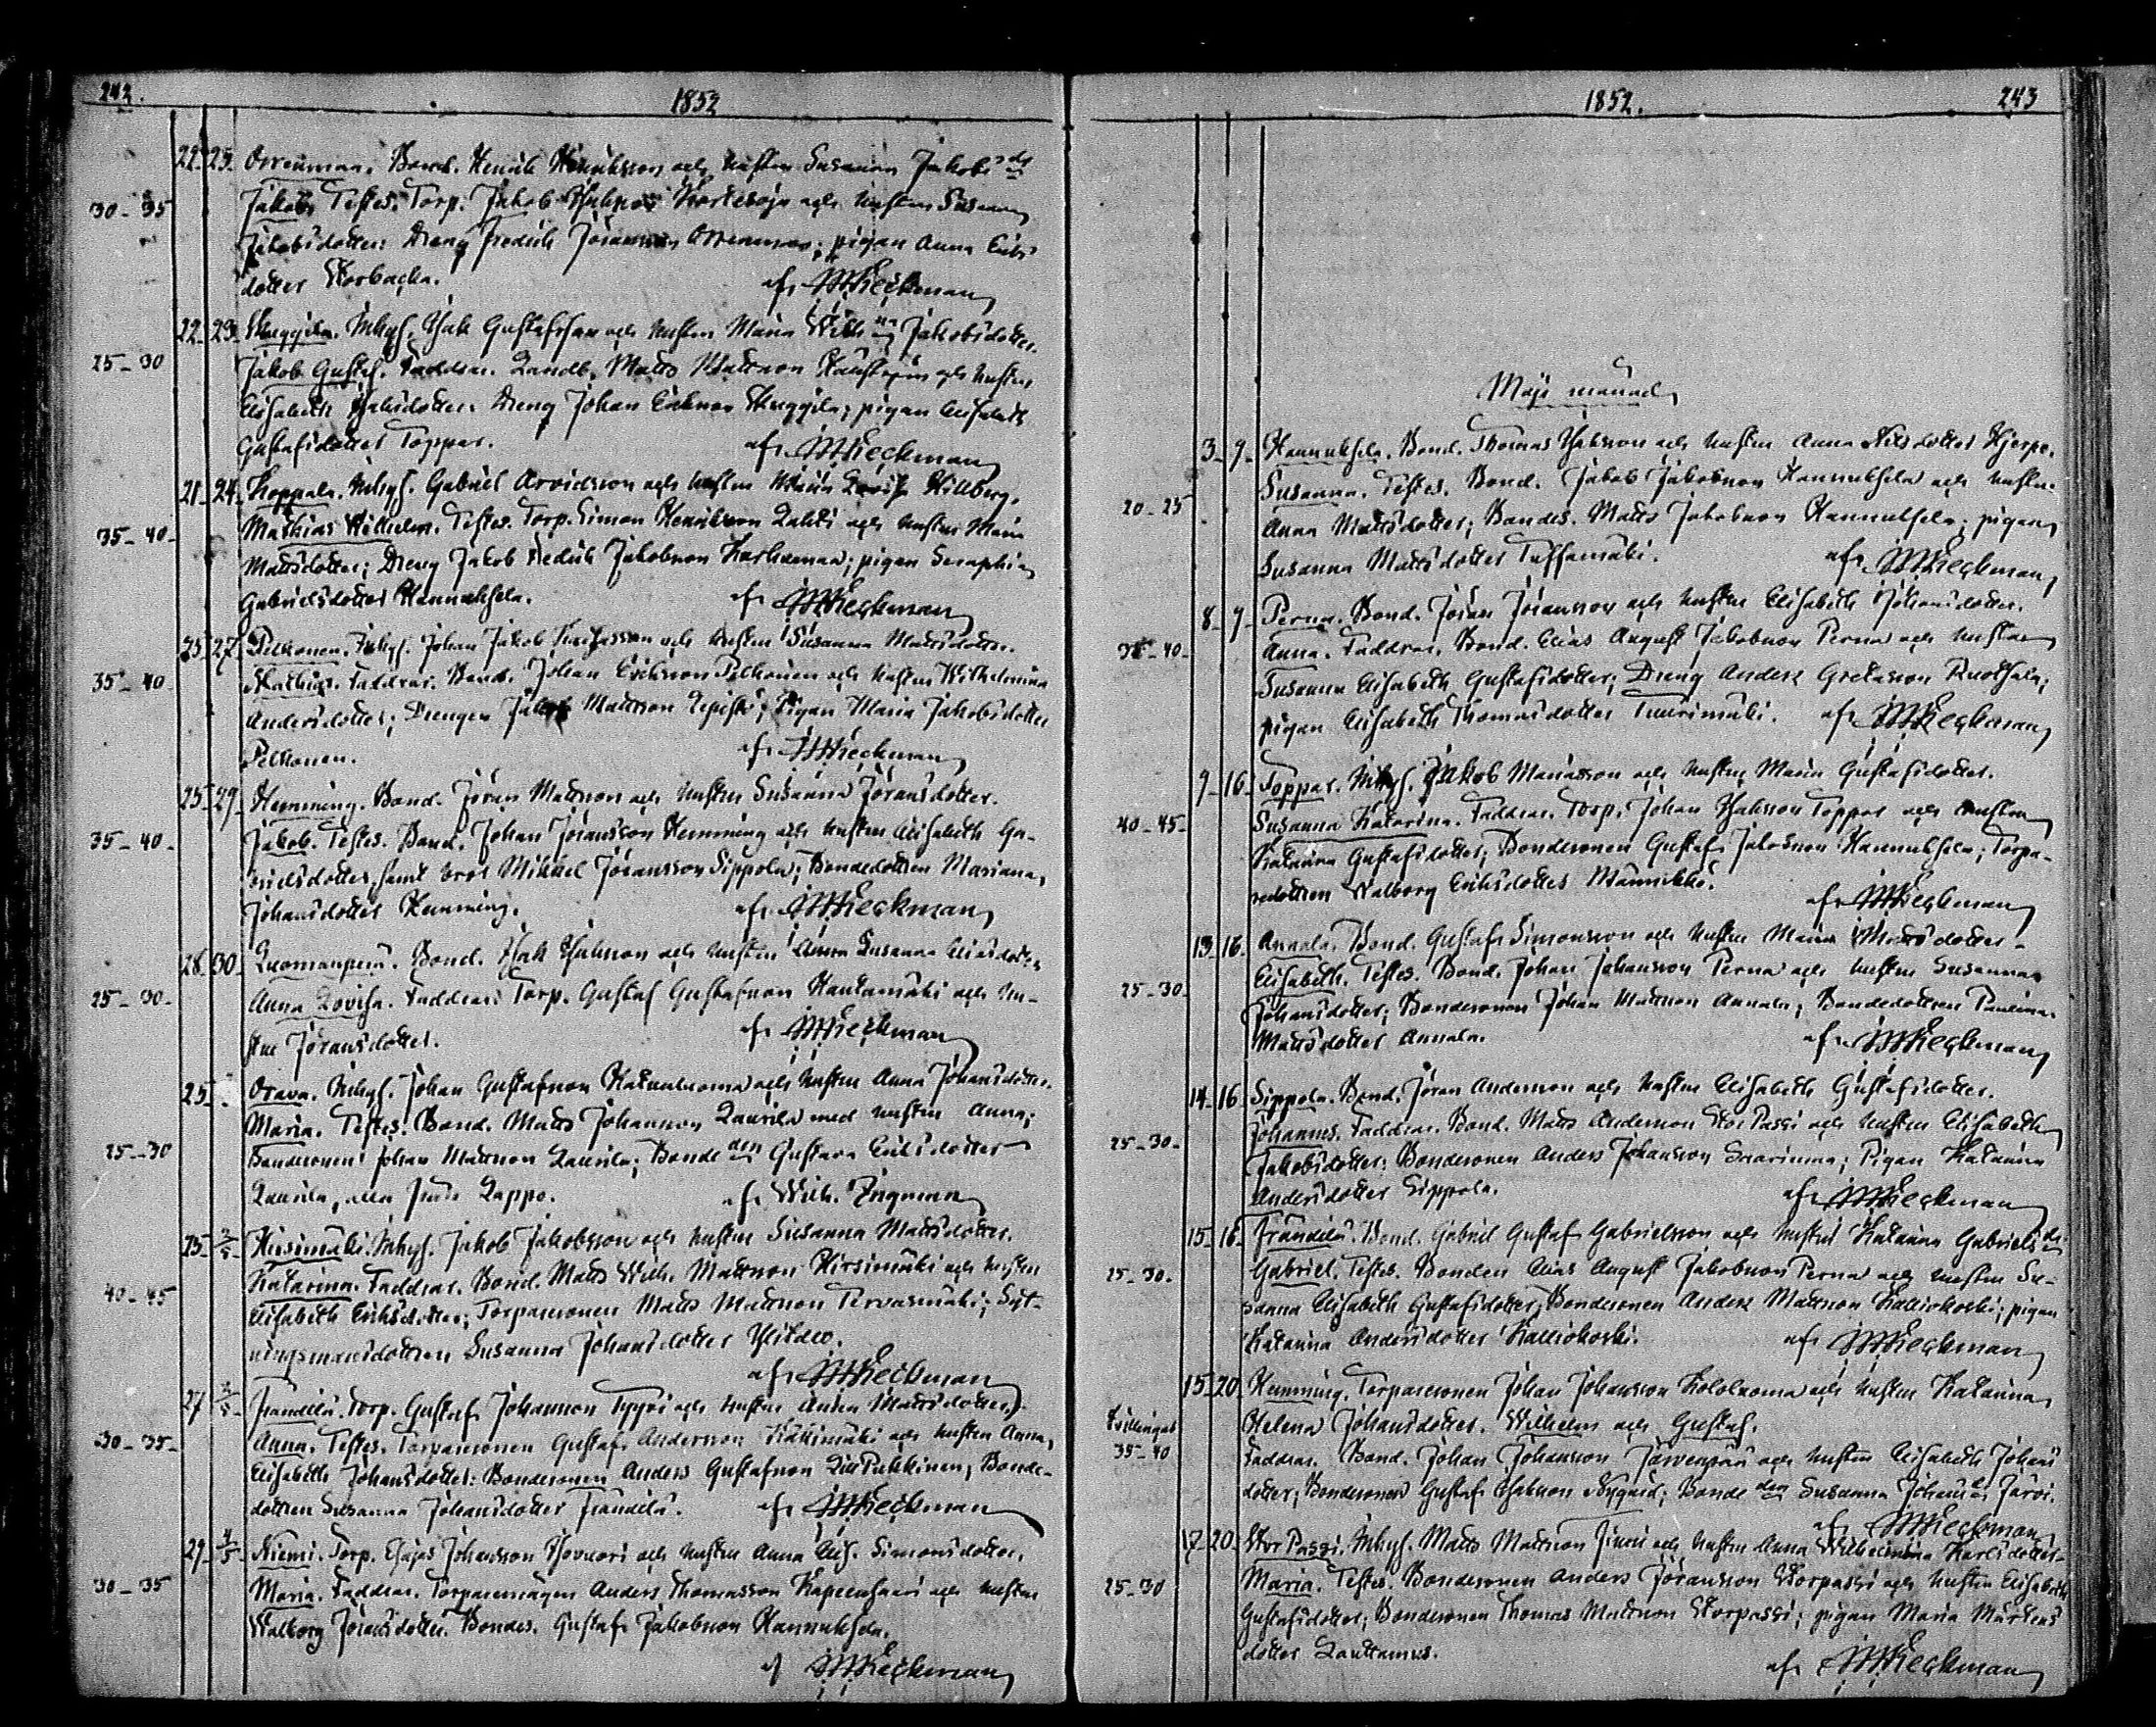 242.
1852
22. 23. Orrenmaa. Bond. Henrik Henriksson och hustru Susanna Jakobs ds
30-35 Jakob. Testes. Torp. Jakob och hustru Susanna
Jakobsdotter: Dreng Fredrik Jöransson Orrenmaa; pigan Anna Eriks-
dotter Storbacka. af M Heckman
22. 23. Skuggila. Inhys. Isak Gustafsson och hustru Maria Wilh na Jakobsdotter.
25-30 Jakob Gustaf. Faddrar. Landb. Matts Mattsson och hustru
Elisabeth Isaksdotter: Dreng Johan Eriksson Skuggila; pigan Elisabeth
Gustafsdotter Toppar. af M Heckman
21. 24. Koppala. Inhys. Gabriel Arvidsson och hustru Maria Lovisa Hillberg.
35-40- Mathias Wilhelm. Testes. Torp. Simon Henriksson Lahti och hustru Maria
Mattsdotter; Dreng Jakob Fredrik Jakobsson Karhunmaa; pigan Seraphia
Gabrielsdotter Hannuksela. af M Heckman
25. 27. Pelkonen. Inhys. Johan Jakob och hustru Susanna Mattsdotter.
35-40- Mathias. Faddrar. Bond. Johan Eriksson Pelkonen och hustru Wilhelmina
Andersdotter; Drengen Jakob Mattsson; Pigan Maria Jakobsdotter
Pelkonen. af M Heckman
25. 29. Hemming. Bond. Jöran Mattsson och hustru Susanna Jöransdotter.
35-40- Jakob. Testes. Bond. Johan Jöransson Hemming och hustru Elisabeth Ga-
brielsdotter, samt bror Mikkel Jöransson Sippola; Bondedottren Mariana
Johansdotter Hemming. af M Heckman
28. 30. Luomanperä. Bond. Isak Isaksson och hustru Anna Susanna Eliasdotter
25-30- Anna Lovisa. Faddrar: Torp. Gustaf Gustafsson Hautamäki och hu-
stru Jöransdotter. af M Heckman
25. Orava. Inhys. Johan Gustafsson Hakualuoma och hustru Anna Johansdotter.
Maria. Testes. Bond. Matts Johansson Laurila med hustru Anna;
25-30 Bondesonen Johan Mattsson Laurila; Bonde den Gustava Eriksdotter
Laurila, alla från Lappo. af Wilh. Ingman
25. 2/5 Hirsimäki. Inhys. Jakob Jakobsson och hustru Susanna Mattsdotter.
40-45 Katarina. Faddrar. Bond. Matts Wilh. Mattsson Hirsimäki och hustru
Elisabeth Eriksdotter; Torparesonen Matts Mattsson Tervasmäki; Syt-
ningsmansdottren Susanna Johansdotter Ylitalo.
af M Heckman
27. 2/5 Frändilä. Torp. Gustaf Johansson Tyyri och hustru Anna Mattsdotter.
30-35- Anna. Testes. Torparesonen Gustaf Andersson och hustru Anna
Elisabeth Johansdotter: Bondesonen Anders Gustafsson Lill Pukkinen, Bonde-
dottren Susanna Johansdotter Frändilä. af M Heckman
29. 4/5 Niemi. Torp. Esajas Johansson och hustru Anna Elis. Simonsdotter.
30-35 Maria. Faddrar. Torparemågen Anders Thomasson och hustru
Walborg Jöransdotter. Bondes. Gustaf Jakobsson Hannuksela.
af M Heckman
1852.
243
Maji månad
3. 9. Hannuksela. Bond. Thomas Isaksson och hustru Anna Nilsdotter Hjerpe.
20-25 Susanna. Testes. Bond. Jakob Jakobsson Hannuksela och hustru
Anna Mattsdotter; Bondes. Matts Jakobsson Hannuksela; pigan
Susanna Mattsdotter. af M Heckman
8. 9. Perna. Bond. Jöran Jöransson och hustru Elisabeth Johansdotter.
35-40- Anna. Faddrar. Bond. Elias August Jakobsson Perna och hustru
Susanna Elisabeth Gustafsdotter; Dreng Anders Gretasson Ruotsala;
pigan Elisabeth Thomasdotter Tuurimäki. af M Heckman
9. 16. Toppar. Inhys. Jakob Mariasson och hustru Maria Gustafsdotter.
40-45- Susanna Katarina. Faddrar. Torp. Johan Isaksson Toppar och hustru
Katarina Gustafsdotter; Bondesonen Gustaf Jakobsson Hannuksela; Torpa-
redottren Walborg Eriksdotter Männikkö. af M Heckman
13. 16. Annala. Bond. Gustaf Simonsson och hustru Maria Mattsdotter.
25-30 Elisabeth. Testes. Bond. Johan Johansson Perna och hustru Susanna
Johansdotter; Bondesonen Johan Mattsson Annala; Bondedottren Paulina
Mattsdotter Annala. af M Heckman
14. 16. Sippola. Bond. Jöran Andersson och hustru Elisabeth Gustafsdotter.
25-30- Johannes. Faddrar. Bond. Matts Andersson Stor Passi och hustru Elisabeth
Jakobsdotter: Bondesonen Anders Johansson; Pigan Katarina
Andersdotter Sippola. af M Heckman
15. 16. Frändilä. Bond. Gabriel Gustaf Gabrielsson och hustru Katarina Gabriels dr
25-30. Gabriel. Testes. Bonden Elias August Jakobsson Perna och hustru Su-
sanna Elisabeth Gustafsdotter; Bondesonen Anders Mattsson Kalliokoski; pigan
Katarina Andersdotter Kalliokoski. af M Heckman
15. 20. Hemming. Torparesonen Johan Johansson Kololuoma och hustru Katarina
Tvillingar Helena Johansdotter. Wilhelm och Gustaf.
35-40 Faddrar. Bond. Johan Johansson Järvenpää och hustru Elisabeth Johans
dotter; Bondesonen Gustaf Isaksson Nygård; Bonde den Susanna Johansd. Järvi.
af M Heckman
17. 20. Stor Passi. Inhys. Matts Mattsson och hustru Anna Wilhelmina Karlsdotter
25-30 Maria. Testes. Bondesonen Anders Jöransson Storpassi och hustru Elisabeth
Gustafsdotter; Bondesonen Thomas Mattsson Storpassi; pigan Maria Mårtens
dotter Lauttamus. af M Heckman